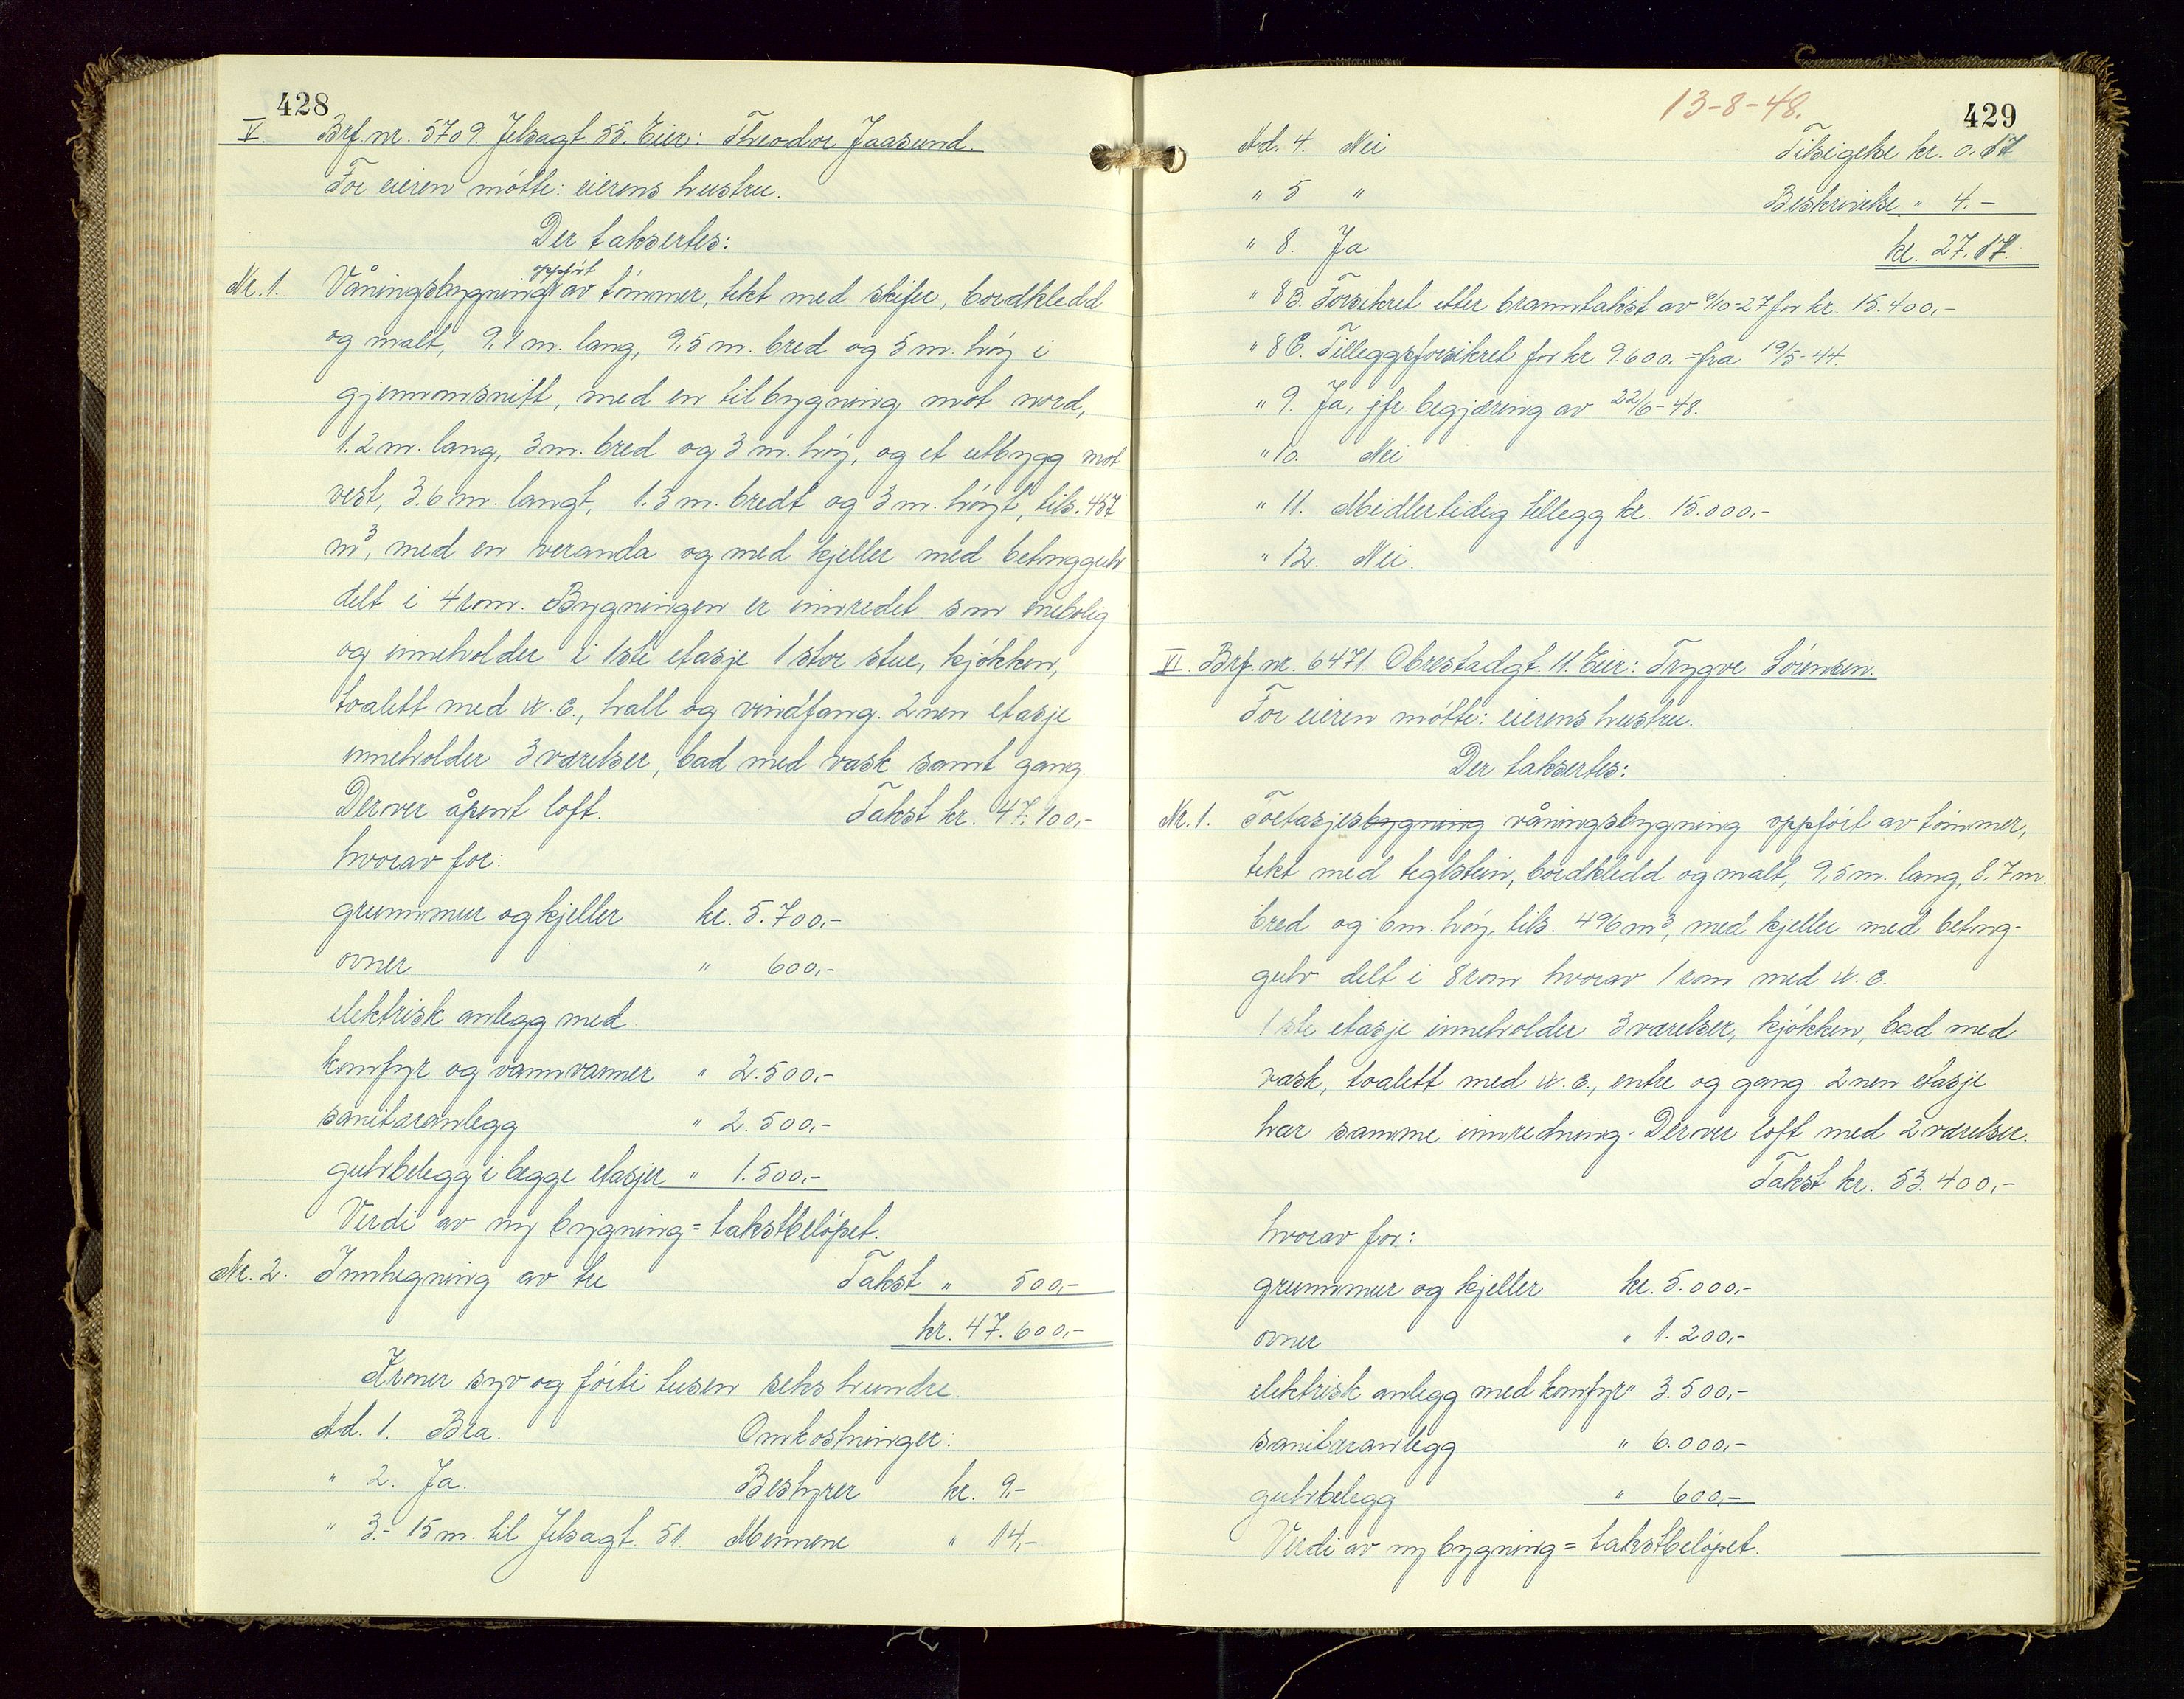 428
V. Brf. nr. 5709. Jelsagt. 55. Eier: Theodor Jaasund.
For eieren møtte: eierens hustru.
Der taksertes:
Nr. 1. Våningsbygning oppført av tømmer, tekt med skifer, bordkledd
og malt, 9,1 m. lang, 9,5 m. bred og 5 m. høy i
gjennomsnitt, med en tilbygning mot nord,
1.2 m. lang, 3 m. bred og 3 m. høy, og et utbygg mot
vest, 3.6 m. langt, 1.3 m. bredt og 3 m. høyt, tils. 457
m³, med en veranda og med kjeller med betonggulv
delt i 4 rom. Bygningen er innredet som enebolig
og inneholder i 1ste etasje 1 stor stue, kjøkken,
toalett med w.c., hall og vindfang. 2nen etasje
inneholder 3 værelser, bad med vask samt gang.
Derover åpent loft. Takst kr. 47.100,-
hvorav for:
grunnmur og kjeller kr. 5.700,-
ovner " 600,-
elektrisk anlegg med
komfyr og vannvarmer " 2.500,-
sanitæranlegg " 2.500,-
gulvbelegg i begge etasjer " 1.500,-
Verdi av ny bygning = takstbeløpet.
Nr. 2. Innhegning av tre Takst " 500,-
kr. 47.600,-
Kroner syv og førti tusen seks hundre.
Ad. 1. Bra. Omkostninger:
" 2. Ja. Bestyrer kr. 9,-
" 3.- 15 m. til Jelsagt. 51. Mennene " 14,-
13-8-48.
429
Ad. 4. Nei Tilsigelse kr. 0.17
" 5 " Beskrivelse " 4.-
" 8. Ja kr. 27.17.
" 8 B. Forsikret etter branntakst av 6/10-27 for kr. 15.400,-
" 8 C. Tilleggsforsikret for kr 9.600.= fra 19/5-44.
" 9. Ja, jfr. begjæring av 22/6-48.
" 10. Nei
" 11. Midlertidig tillegg kr. 15.000,-
" 12. Nei.
VI. Brf. nr. 6471. Obrestadgt. 11. Eier: Trygve Sørensen.
For eieren møtte: eierens hustru.
Der taksertes:
Nr. 1. Toetasjesbygning våningsbygning oppført av tømmer,
tekt med teglstein, bordkledd og malt, 9,5 m. lang, 8,7 m.
bred og 6 m. høy, tils. 496 m³, med kjeller med betong-
gulv delt i 8 rom hvorav 1 rom med w.c.
1ste etasje inneholder 3 værelser, kjøkken, bad med
vask, toalett med w.c., entre og gang. 2nen etasje
har samme innredning. Derover loft med 2 værelser.
Takst kr. 53.400,-
hvorav for:
grunnmur og kjeller kr. 5.000,-
ovner " 1.200,-
elektrisk anlegg med komfyr " 3.500,-
sanitæranlegg " 6.000,-
gulvbelegg " 600,-
Verdi av ny bygning = takstbeløpet.